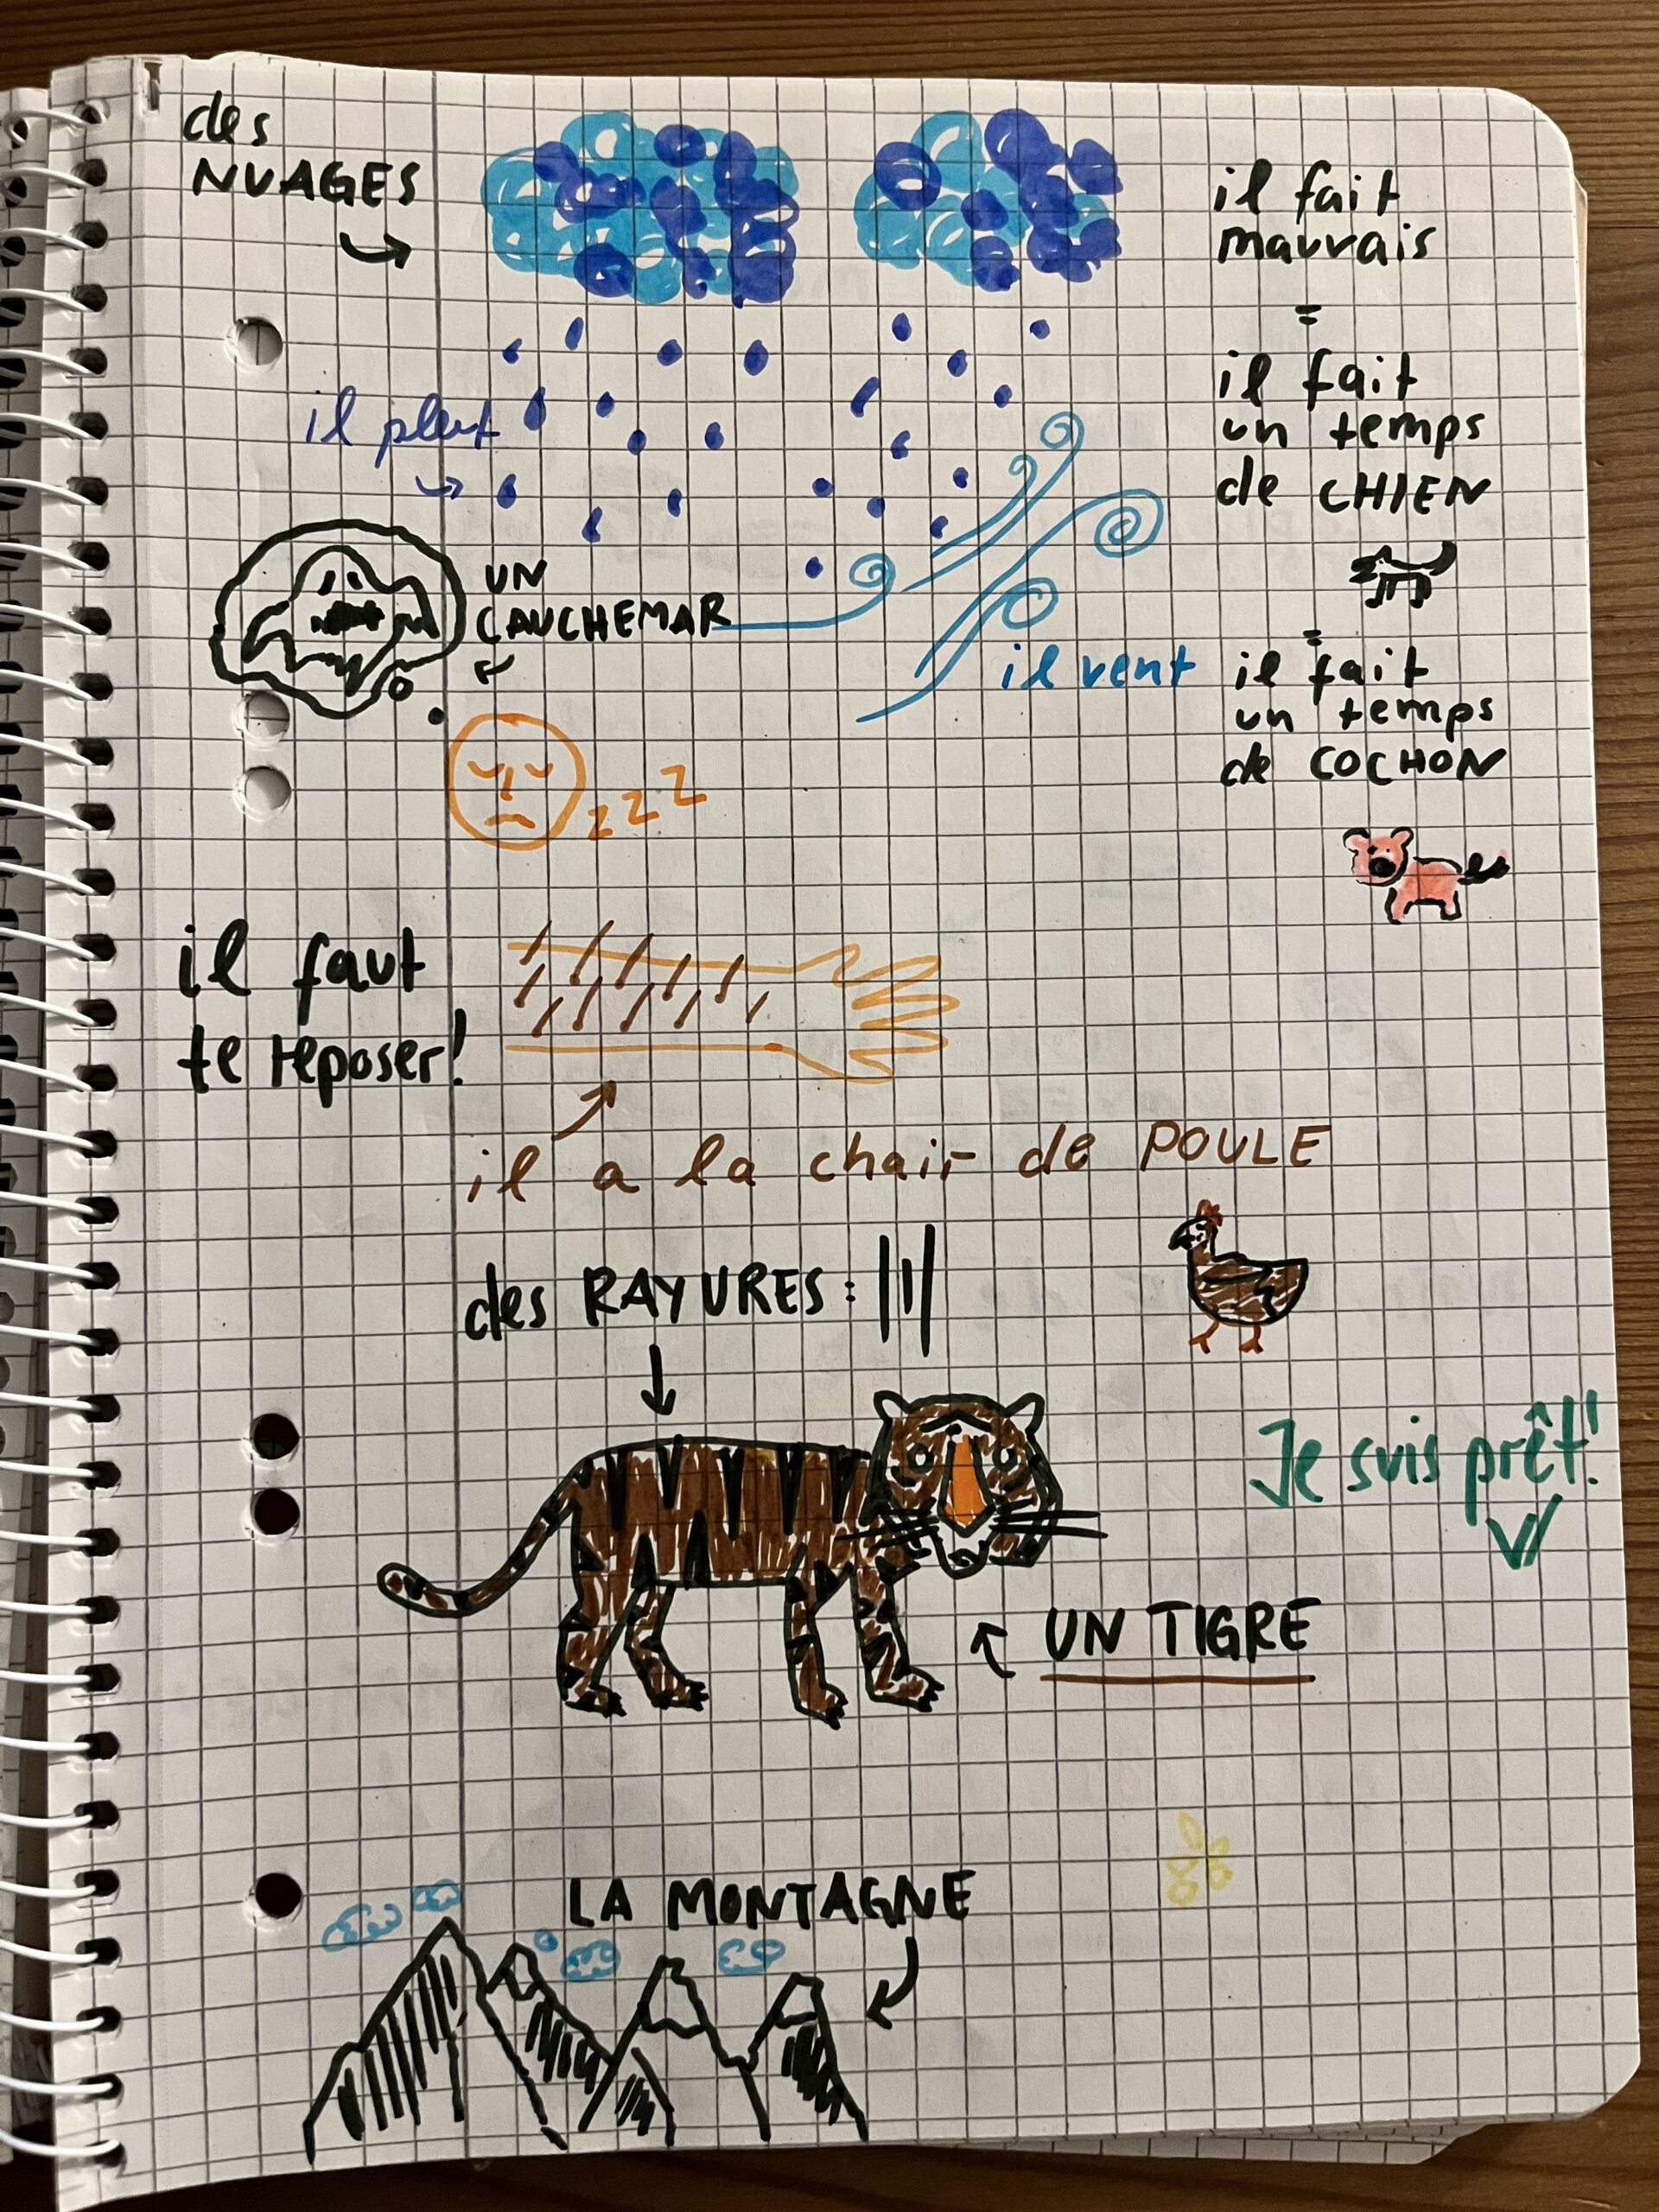 des
NUAGES
il fait
mauvais
=
il fait
un temps
de CHIEN
=
il fait
un temps
de COCHON
il pleut
UN
CAUCHEMAR
il vent
z z z
il faut
te reposer!
il a la chair de POULE
des RAYURES:
Je suis prêt!
UN TIGRE
LA MONTAGNE